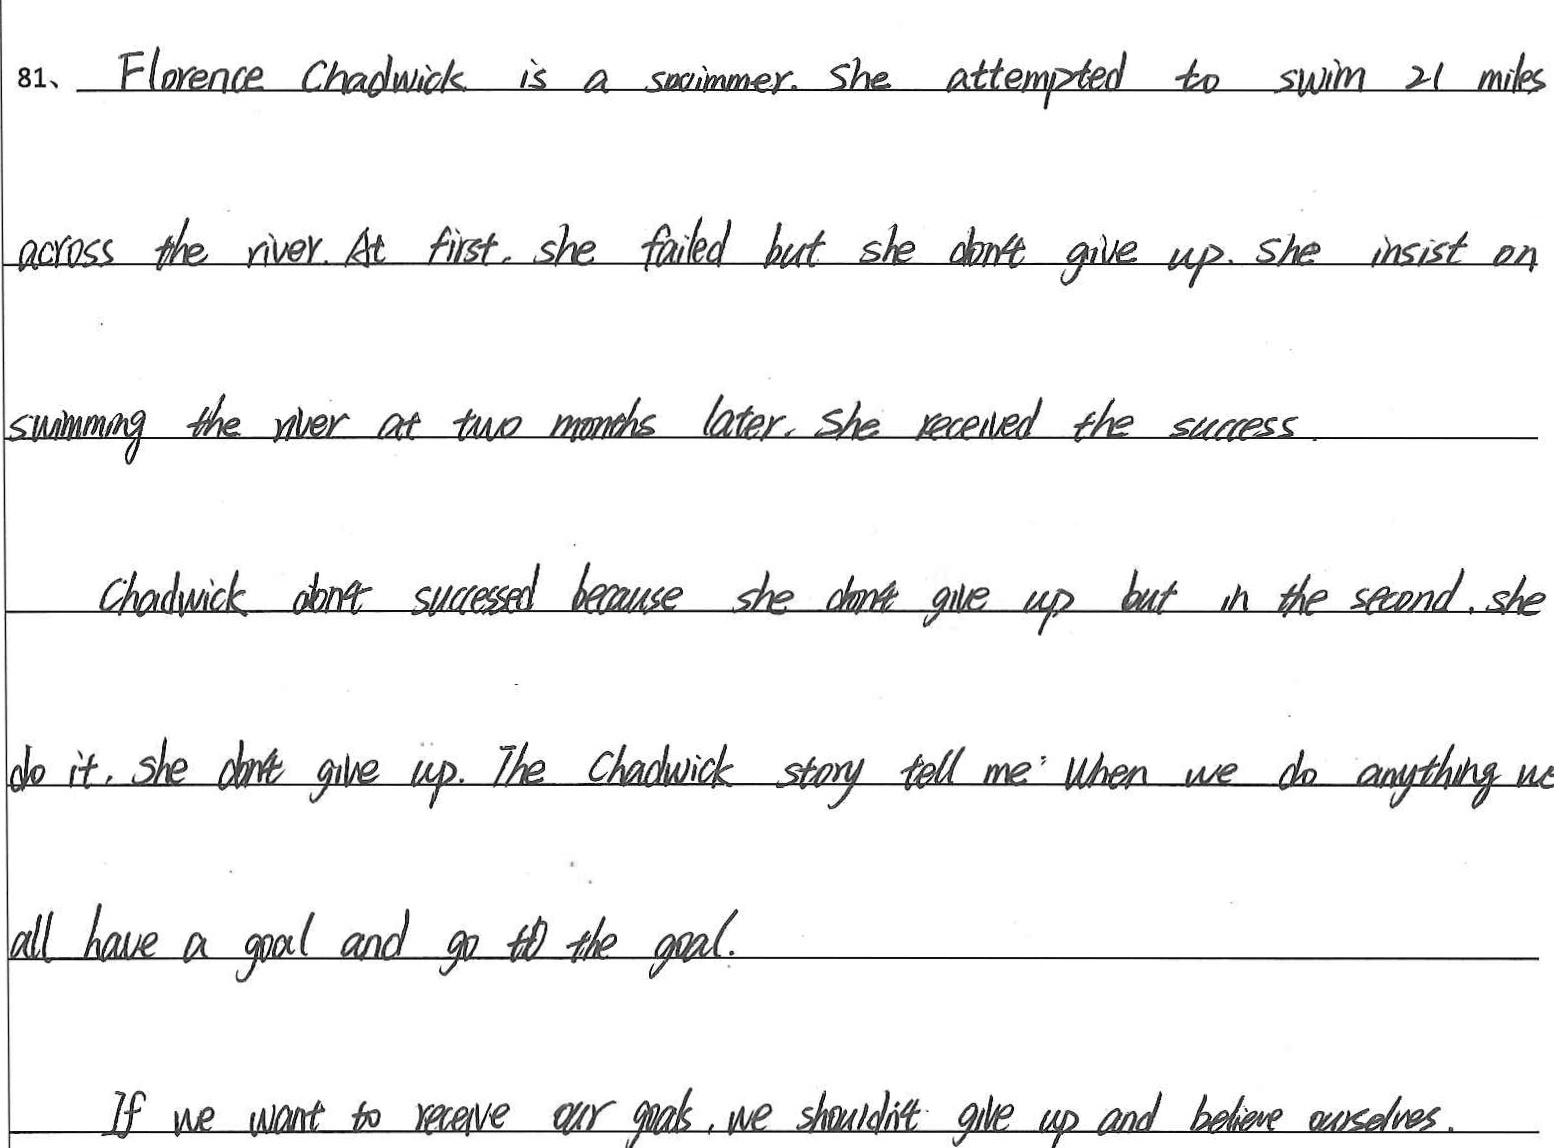 81、 Florence Chadwick is a swimmer. She attempted to swim 21 miles
across the river. At first. she failed but she don't give up. She insist on
swimming the river at two months later. She received the success.
Chadwick don't successed because she don't give up but in the second. she
do it. she don't give up. The Chadwick story tell me: When we do anything we
all have a goal and go to the goal.
If we want to receive our goals, we shouldn't give up and believe ourselves.